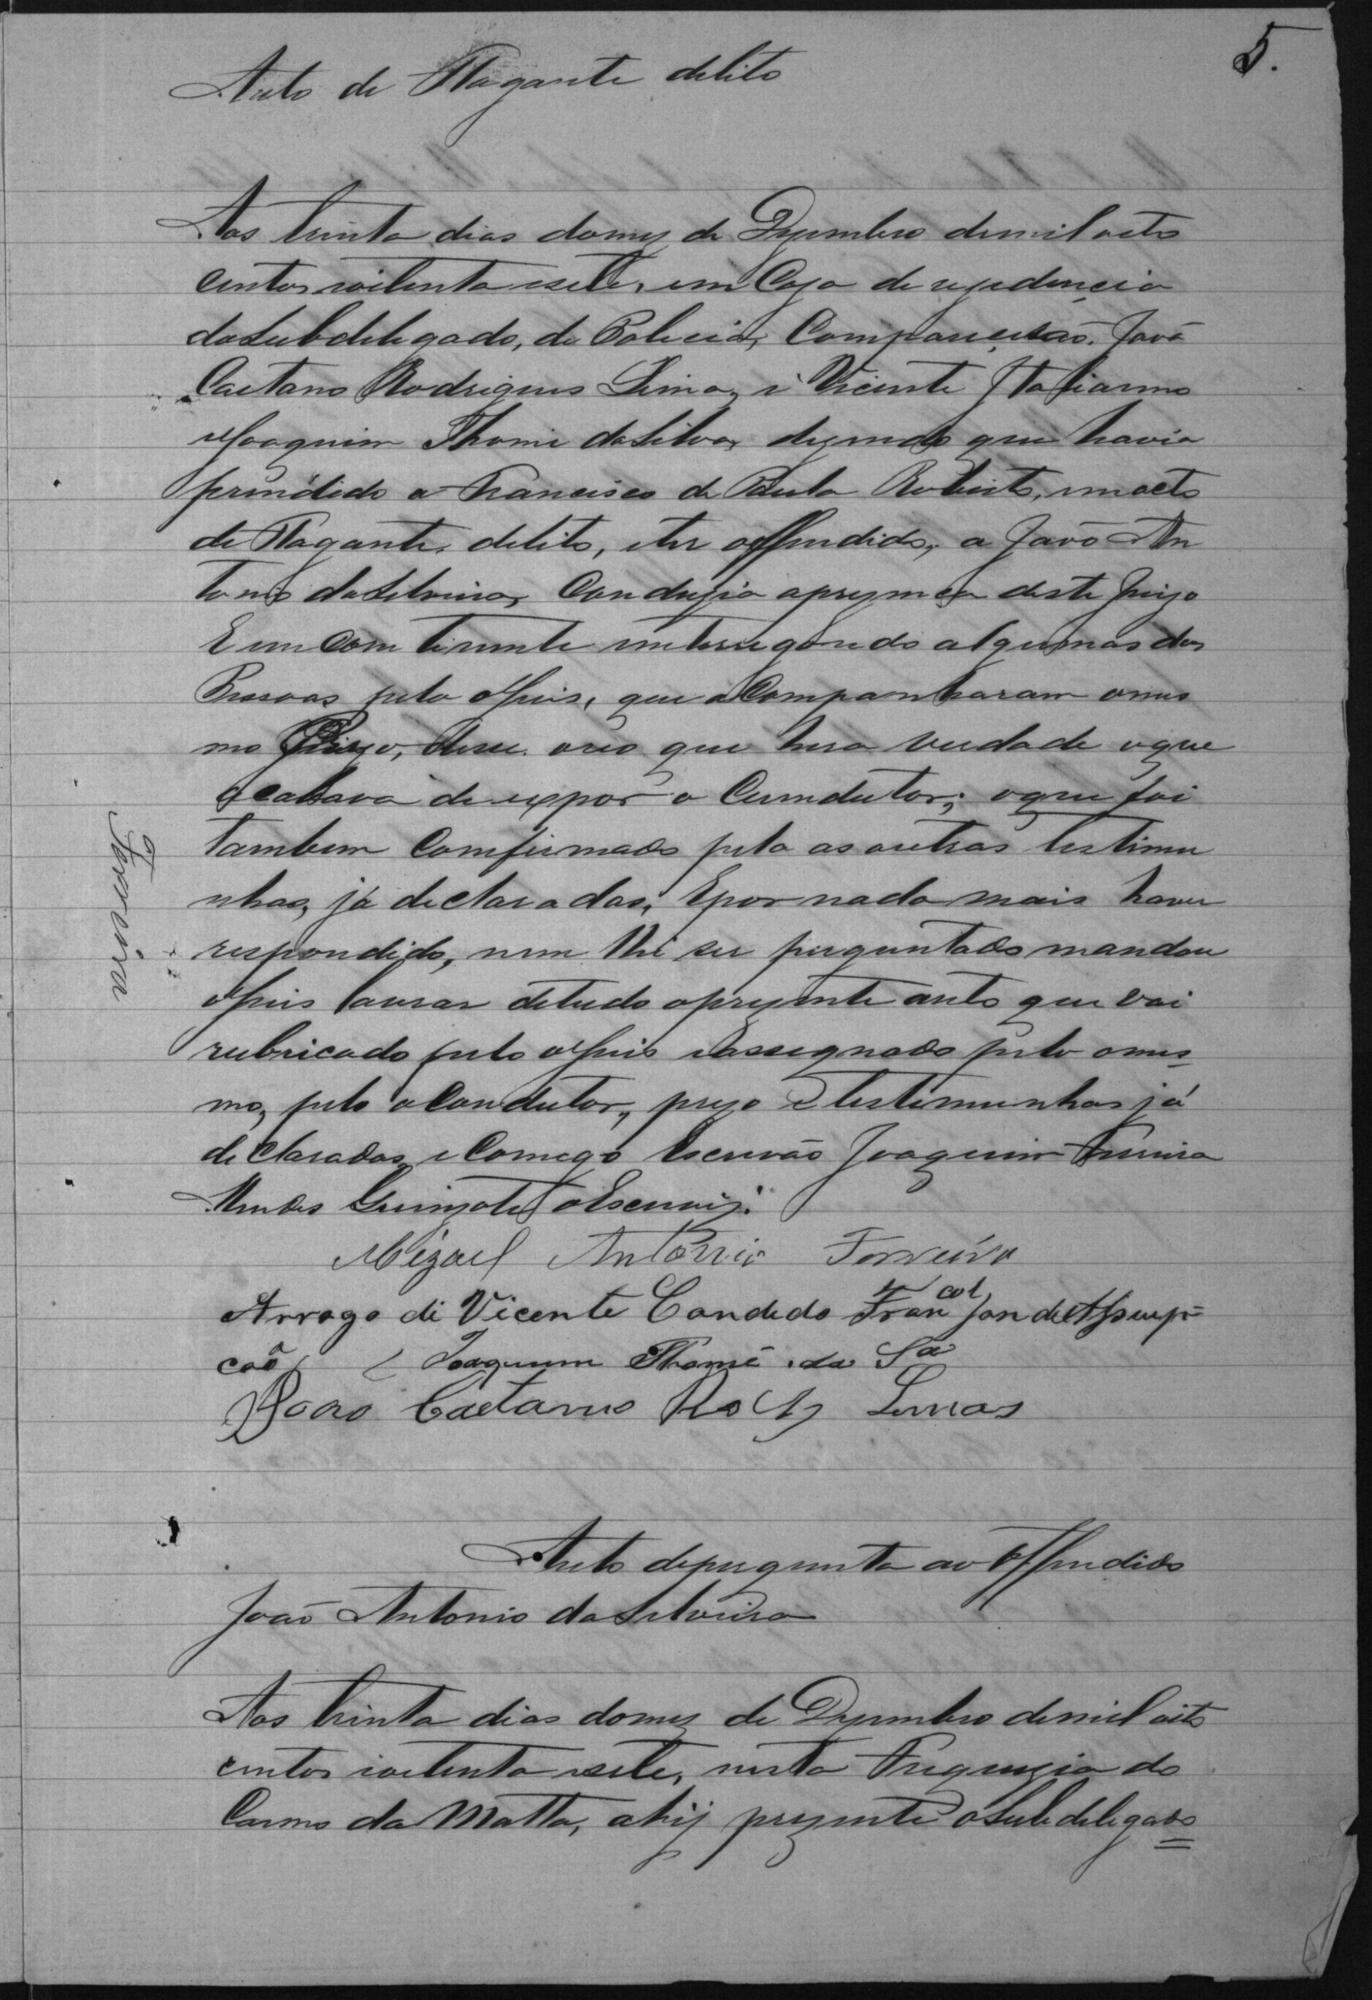 5.
Auto de Flagante delito
Aos trinta dias domez de Dezembro demil oito
centos ioitenta esete, em Caza de rezidencia
dosubdelegado, de Policia, Compareserão, João
Caetano Rodrigues Lima, i Vicente Italianno
eJoaquim Thomé daSilva, dizendo que havia
prendido a Francisco de Paula Roberto, em acto
de Flagante, delito, eter offendido, a João An
tonio daSilveira, Conduzia aprezença deste Juizo
E em Com tinente interrogando algumas das
Pessoas pelo oJuis, que a Companharam omes
mo Prezo, disse. oreo que hera verdade oque
acabava de expor o Cundutor; oque foi
tambem Comfirmado pela as outras testimu
nhas, já declaradas, Epor nada mais haver
respondido, nem lhe ser perguntado mandou
oJuis lavrar detudo aprezente auto que vai
rubricado pelo oJuis eassegnado pelo omes
mo, pelo oCondutor, prezo e testemunhas já
declaradas, eComego Escrivão Joaquim Ferreira
Mendes oEscrevij.
Ferreira
Mizael Antonio Ferreira
Arrogo di Vicente Candido Fran col
cão Joaquim Thomé da Sa
João Caetano Roiz Limas
Auto depergunta ao Offendido
João Antonio daSilveira
Aos trinta dias domez de Dezembro demil oito
centos ioitenta esete, nesta Freguezia do
Carmo da Matta, ahij prezente oSubdelegado